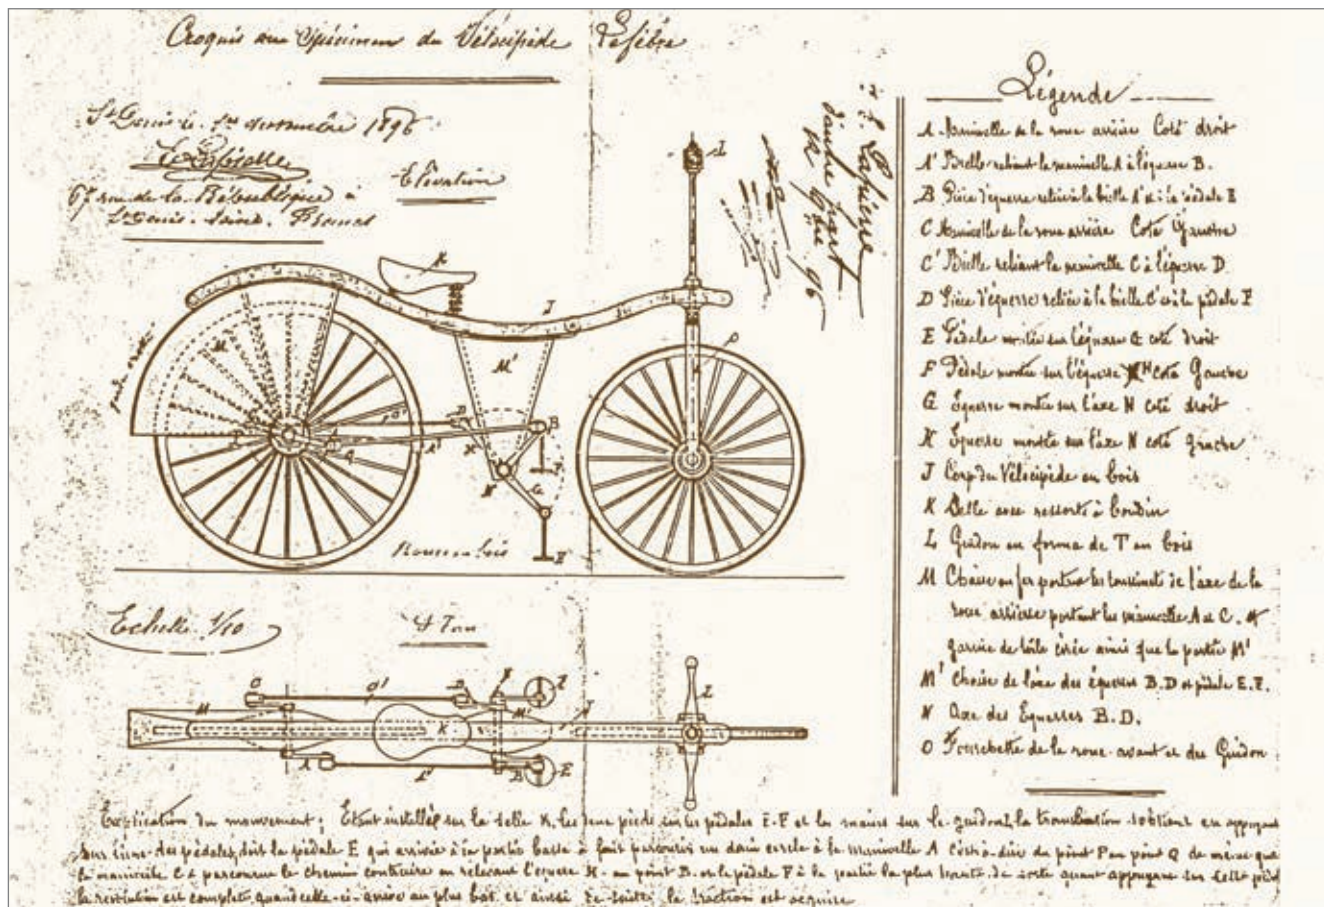 Croquis au Spécimen du Vélocipède Lefèbre
St Denis le 1er 1896
67 rue de la République à
St Denis. Seine. France
Elévation
L. Lefebvre
d'autre part
96
Légende
A Manivelle de la roue arrière Coté droit
A' Bielle reliant la manivelle A à l'équerre B.
B Pièce d'équerre reliée à la bielle A' et à la pédale E
C Manivelle de la roue arrière Coté Gauche
C' Bielle reliant la manivelle C à l'équerre D.
D Pièce d'équerre reliée à la bielle C' et à la pédale F
E Pédale montée sur l'équerre G coté droit
F Pédale montée sur l'équerre H coté Gauche
G Equerre montée sur l'axe N coté droit
K Equerre montée sur l'axe N coté gauche
J Corp du Vélocipède en bois
K Selle avec ressorts à boudin
L Guidon en forme de T en bois
M Chaise en fer portant les coussinets de l'axe de la
roue arrière portant les manivelles A et C. et
garnie de toile cirée ainsi que la partie M'
M' Chaise de l'axe des équerres B.D et pédale E.F.
N Axe des Equerres B.D.
O Fourchette de la roue avant et du Guidon
L
K
J
M
M'
O
D
B
A'
N
G
E
Roue en bois
Echelle 1/10
Plan
C
D
M
M'
J
K
L
A
A'
B
E
Explication du mouvement; Etant installé sur la selle K, les deux pieds sur les pédales E.F et les mains sur le guidon L, la translation s'obtient en appuyant
sur l'une des pédales, soit la pédale E qui arrivée à la partie basse a fait parcourir un demi cercle à la manivelle A c'est-à-dire du point P au point Q de même que
la manivelle C a parcouru le chemin contraire en relevant l'équerre H au point B. et la pédale F à la partie la plus haute. de sorte quant appuyant sur cette
la révolution est complète quand celle-ci arrive au plus bas et ainsi de suite, la traction est acquise